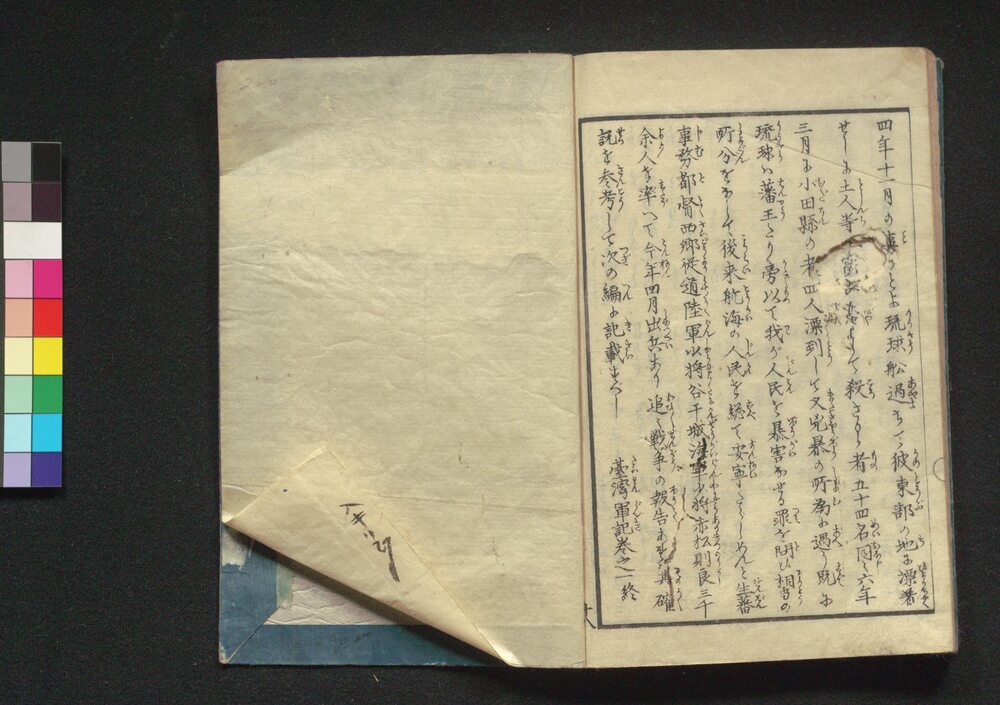 四年十一月の事なりとよ琉球船過ちて彼東部の地に漂着
せしに土人等の為に殺さるゝ者五十四名同く六年
三月に小田縣の者四人漂到して又兇暴の所為に遇り既に
琉球ハ藩王たり旁以て我が人民を暴害なせる罪を問ひ相当の
所分をなして後来航海の人民を総て安寧ならしめんと生蕃
事務都督西郷従道陸軍少将谷干城海軍少将赤松則良三千
余人を率へて今年四月出兵あり追て戦争の報告あれバ其確
説を参考して次の編に記載すべし
臺湾軍記巻之一終